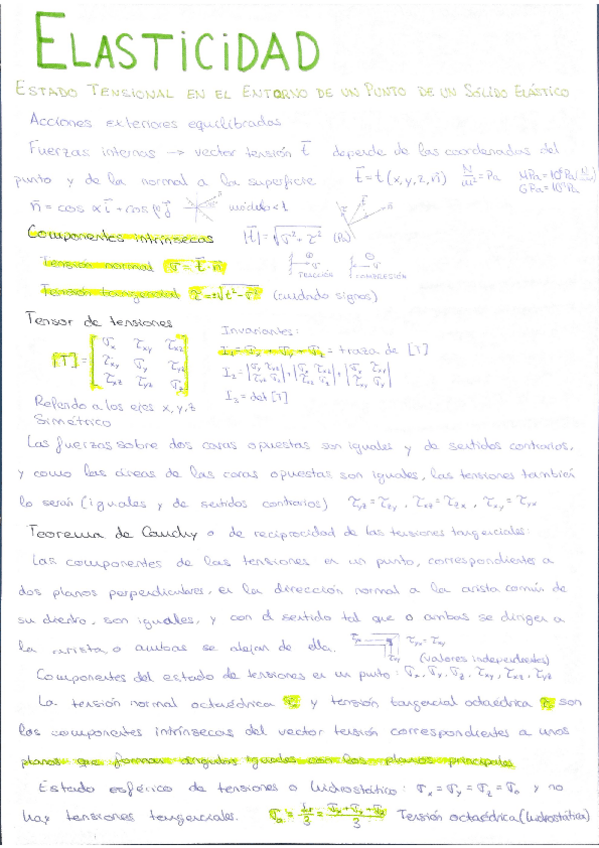 ELASTICIDAD
ESTADO TENSIONAL EN EL ENTORNO DE UN PUNTO DE UN SÓLIDO ELÁSTICO
Acciones exteriores equilibradas
Fuerzas internas → vector tensión t̄ depende de las coordenadas del
punto y de la normal a la superficie t̄ = t (x, y, z, n̄) N/m² = Pa MPa = 10⁶ Pa
GPa = 10⁹ Pa
n̄ = cos α i̅ + cos β j̅ módulo < 1
Componentes intrínsecas |t̄| = √σ² + τ² (Pa)
Tensión normal σ = t̄ · n̄ TRACCIÓN COMPRESIÓN
Tensión tangencial τ = ±√t² - σ² (cuidado signos)
Tensor de tensiones Invariantes:
[T] = [σx τxy τxz
τxy σy τyz
τxz τyz σz]
I₁ = σx + σy + σz = traza de [T]
I₂ = |σy τyz τyz σz| + |σx τxz τxz σz| + |σx τxy τxy σy|
I₃ = det [T]
Referido a los ejes x, y, z
Simétrico
Las fuerzas sobre dos caras opuestas son iguales y de sentidos contrarios,
y como las áreas de las caras opuestas son iguales, las tensiones también
lo serán (iguales y de sentidos contrarios) τyz = τzy, τxz = τzx, τxy = τyx
Teorema de Cauchy o de reciprocidad de las tensiones tangenciales:
Las componentes de las tensiones en un punto, correspondientes a
dos planos perpendiculares, en la dirección normal a la arista común de
su diedro, son iguales, y con el sentido tal que o ambas se dirigen a
la arista o ambas se alejan de ella. τyx τxy τyx = τxy
(valores independientes)
Componentes del estado de tensiones en un punto: σx, σy, σz, τxy, τxz, τyz
La tensión normal octaédrica σ₀ y tensión tangencial octaédrica τ₀ son
las componentes intrínsecas del vector tensión correspondientes a unos
planos que forman ángulos iguales con los planos principales
Estado esférico de tensiones o hidrostático: σx = σy = σz = σ₀ y no
hay tensiones tangenciales. σ₀ = I₁/3 = σx + σy + σz/3 Tensión octaédrica (hidrostática)